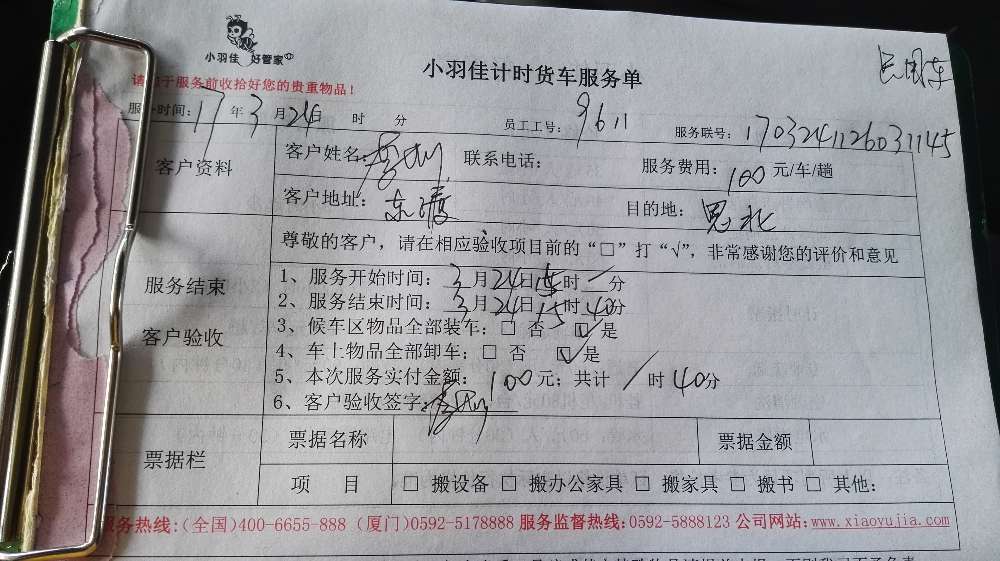 小羽佳 好管家
小羽佳计时货车服务单
请 于服务前收拾好您的贵重物品！
服务时间：17年3月24日 时 分 员工工号：9611 服务联号：1703241126031145
客户资料
客户姓名： 联系电话： 服务费用：100元/车/趟
客户地址：东渡 目的地：思北
尊敬的客户，请在相应验收项目前的“□”打“√”，非常感谢您的评价和意见
服务结束
客户验收
1、服务开始时间：3月24日15时一分
2、服务结束时间：3月24日15时40分
3、候车区物品全部装车：□ 否 ☑ 是
4、车上物品全部卸车：□ 否 ☑ 是
5、本次服务实付金额：100元；共计 / 时40分
6、客户验收签字：
票据栏
票据名称 票据金额
项 目 □ 搬设备 □ 搬办公家具 □ 搬家具 □ 搬书 □ 其他：
服务热线:(全国)400-6655-888 (厦门)0592-5178888 服务监督热线:0592-5888123 公司网站:www.xiaoyujia.com